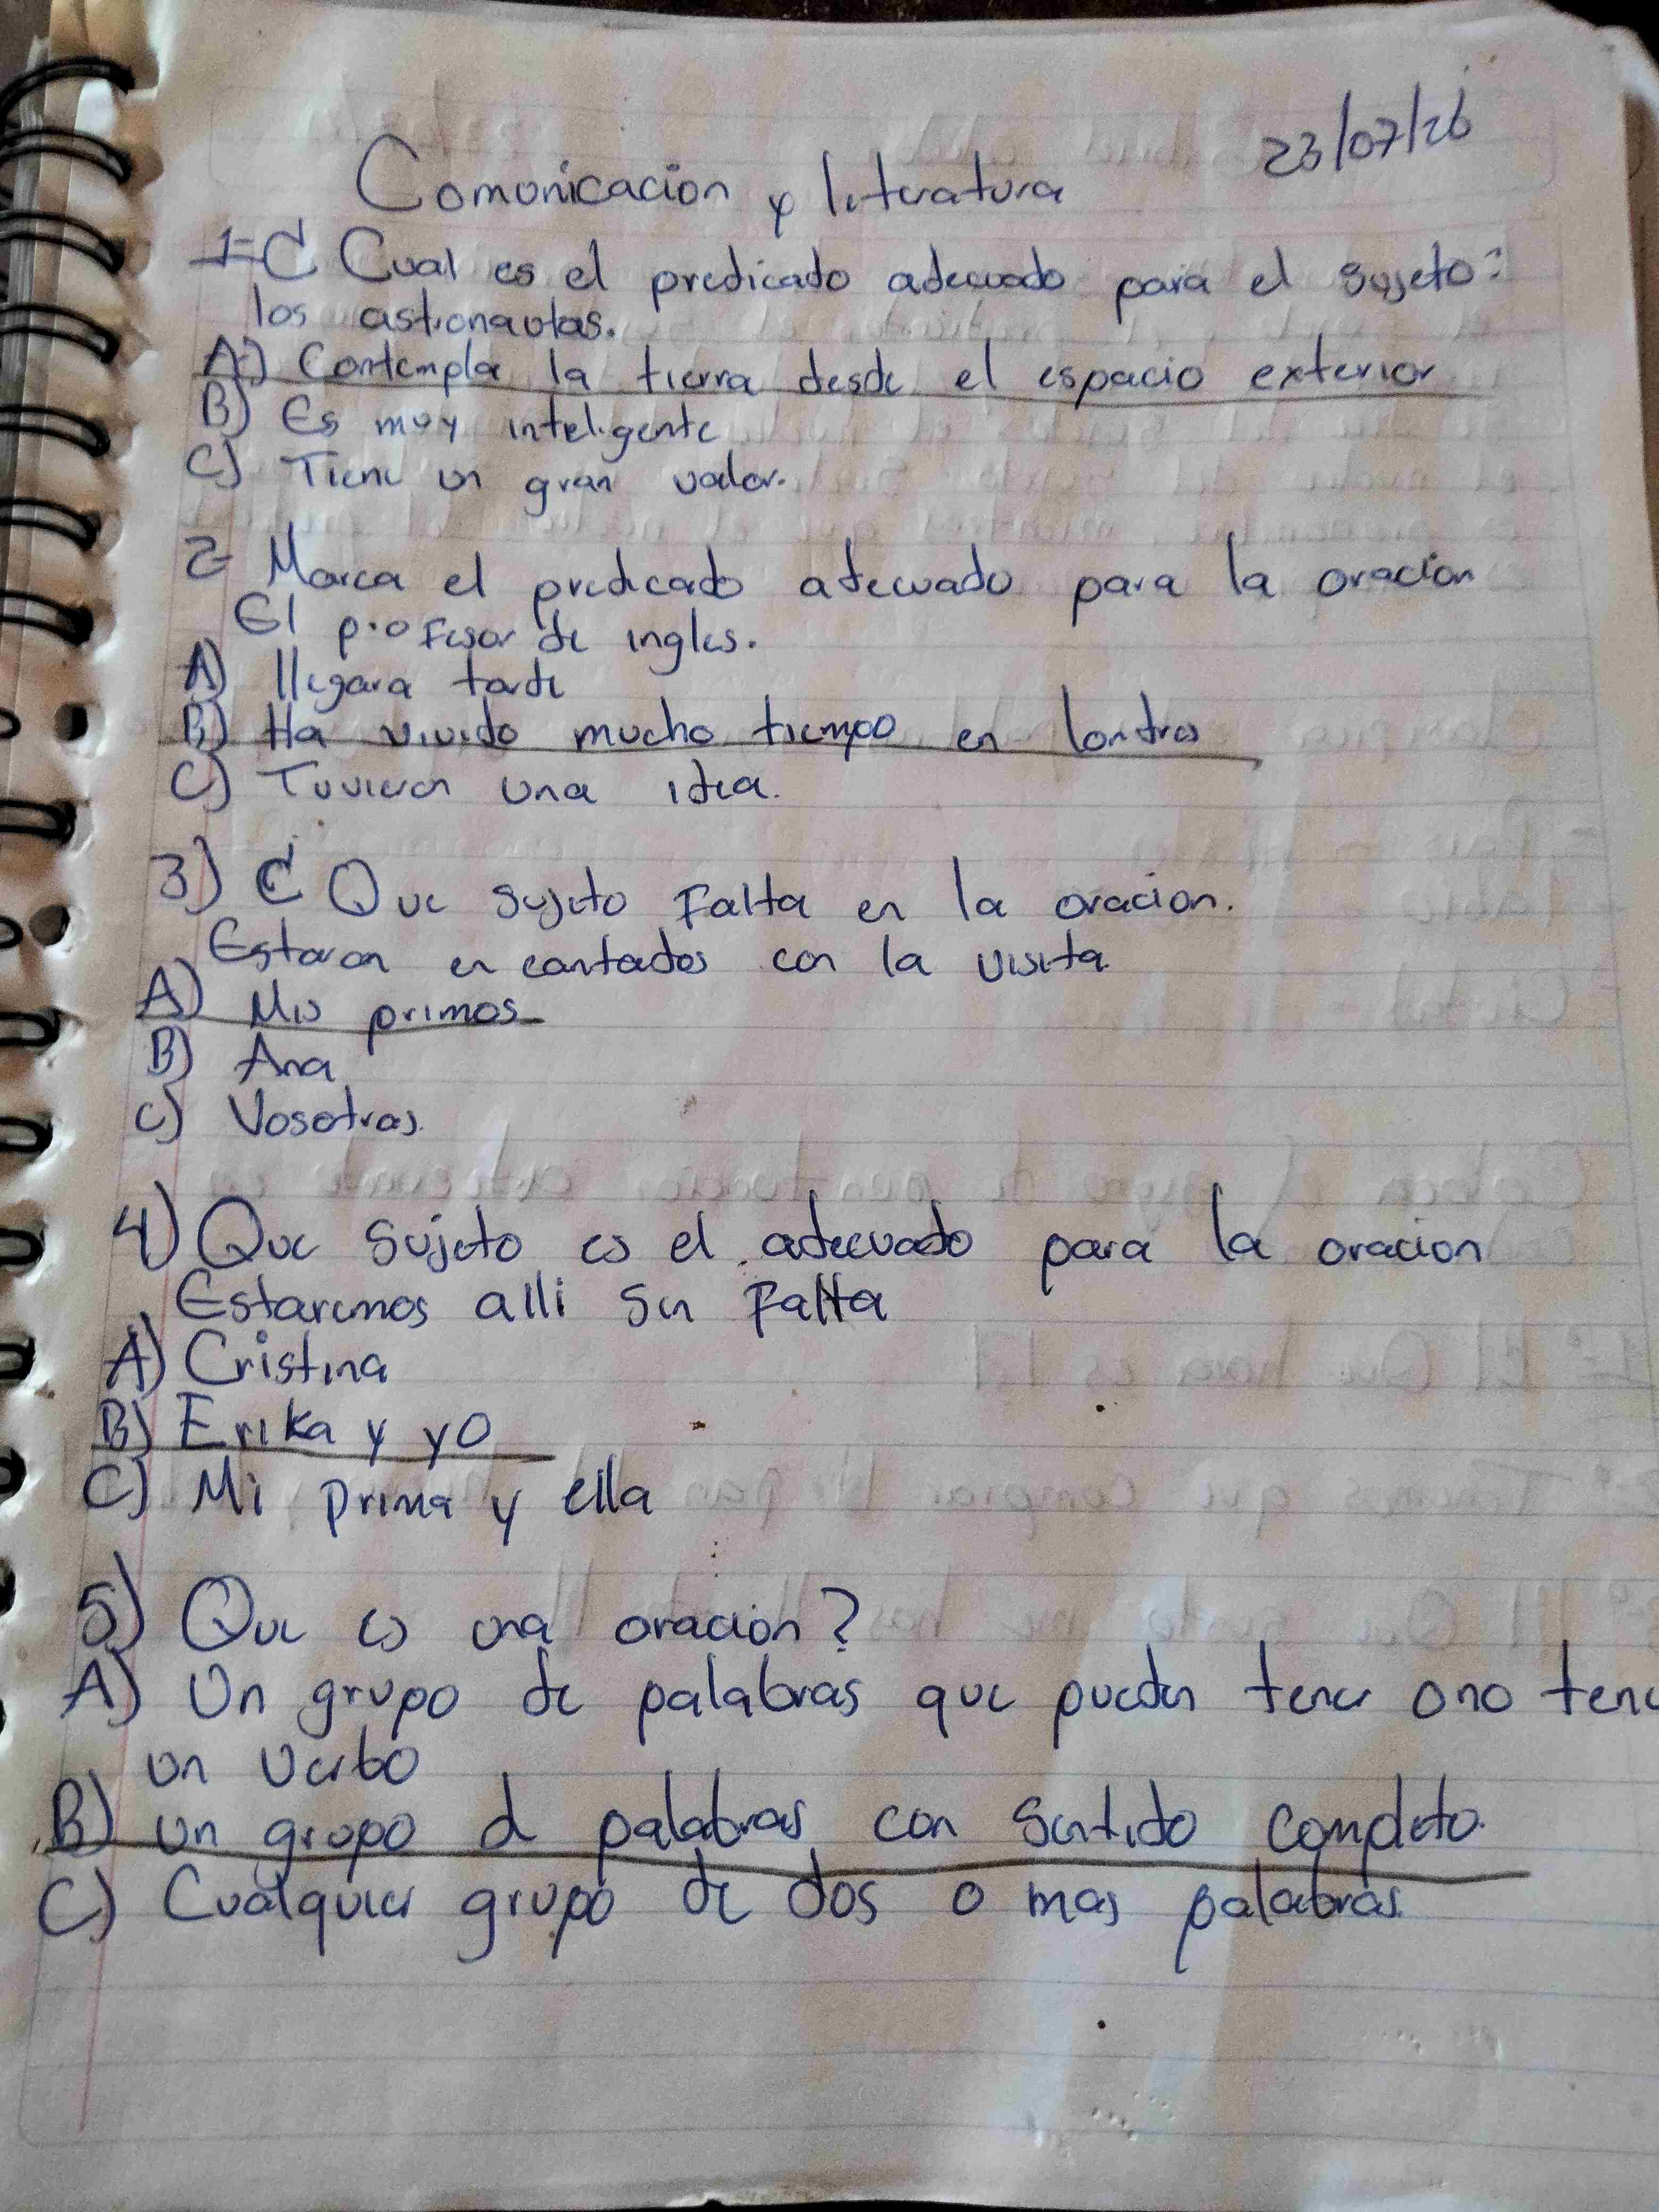 Comonicacion y literatura 23/07/26
1= ¿ Cual es el predicado adecuado para el sujeto:
los astronautas.
A) Contempla la tierra desde el espacio exterior
B) Es muy inteligente
C) Tiene un gran valor.
2- Marca el predicado adecuado para la oracion
El profesor de ingles.
A) llegara tarde
B) Ha vivido mucho tiempo en londres
C) Tuvieron una idea.
3) ¿ Que sujeto Falta en la oracion.
Estaran en cantados con la visita
A) Mis primos
B) Ana
C) Vosotras.
4) Que sujeto es el adecuado para la oracion
Estaremos alli sin Falta
A) Cristina
B) Erika y yo
C) Mi prima y ella
5) Que es una oracion?
A) Un grupo de palabras que pueden tener o no tene
un verbo
B) un grupo d palabras con sentido completo.
C) Cualquier grupo de dos o mas palabras.